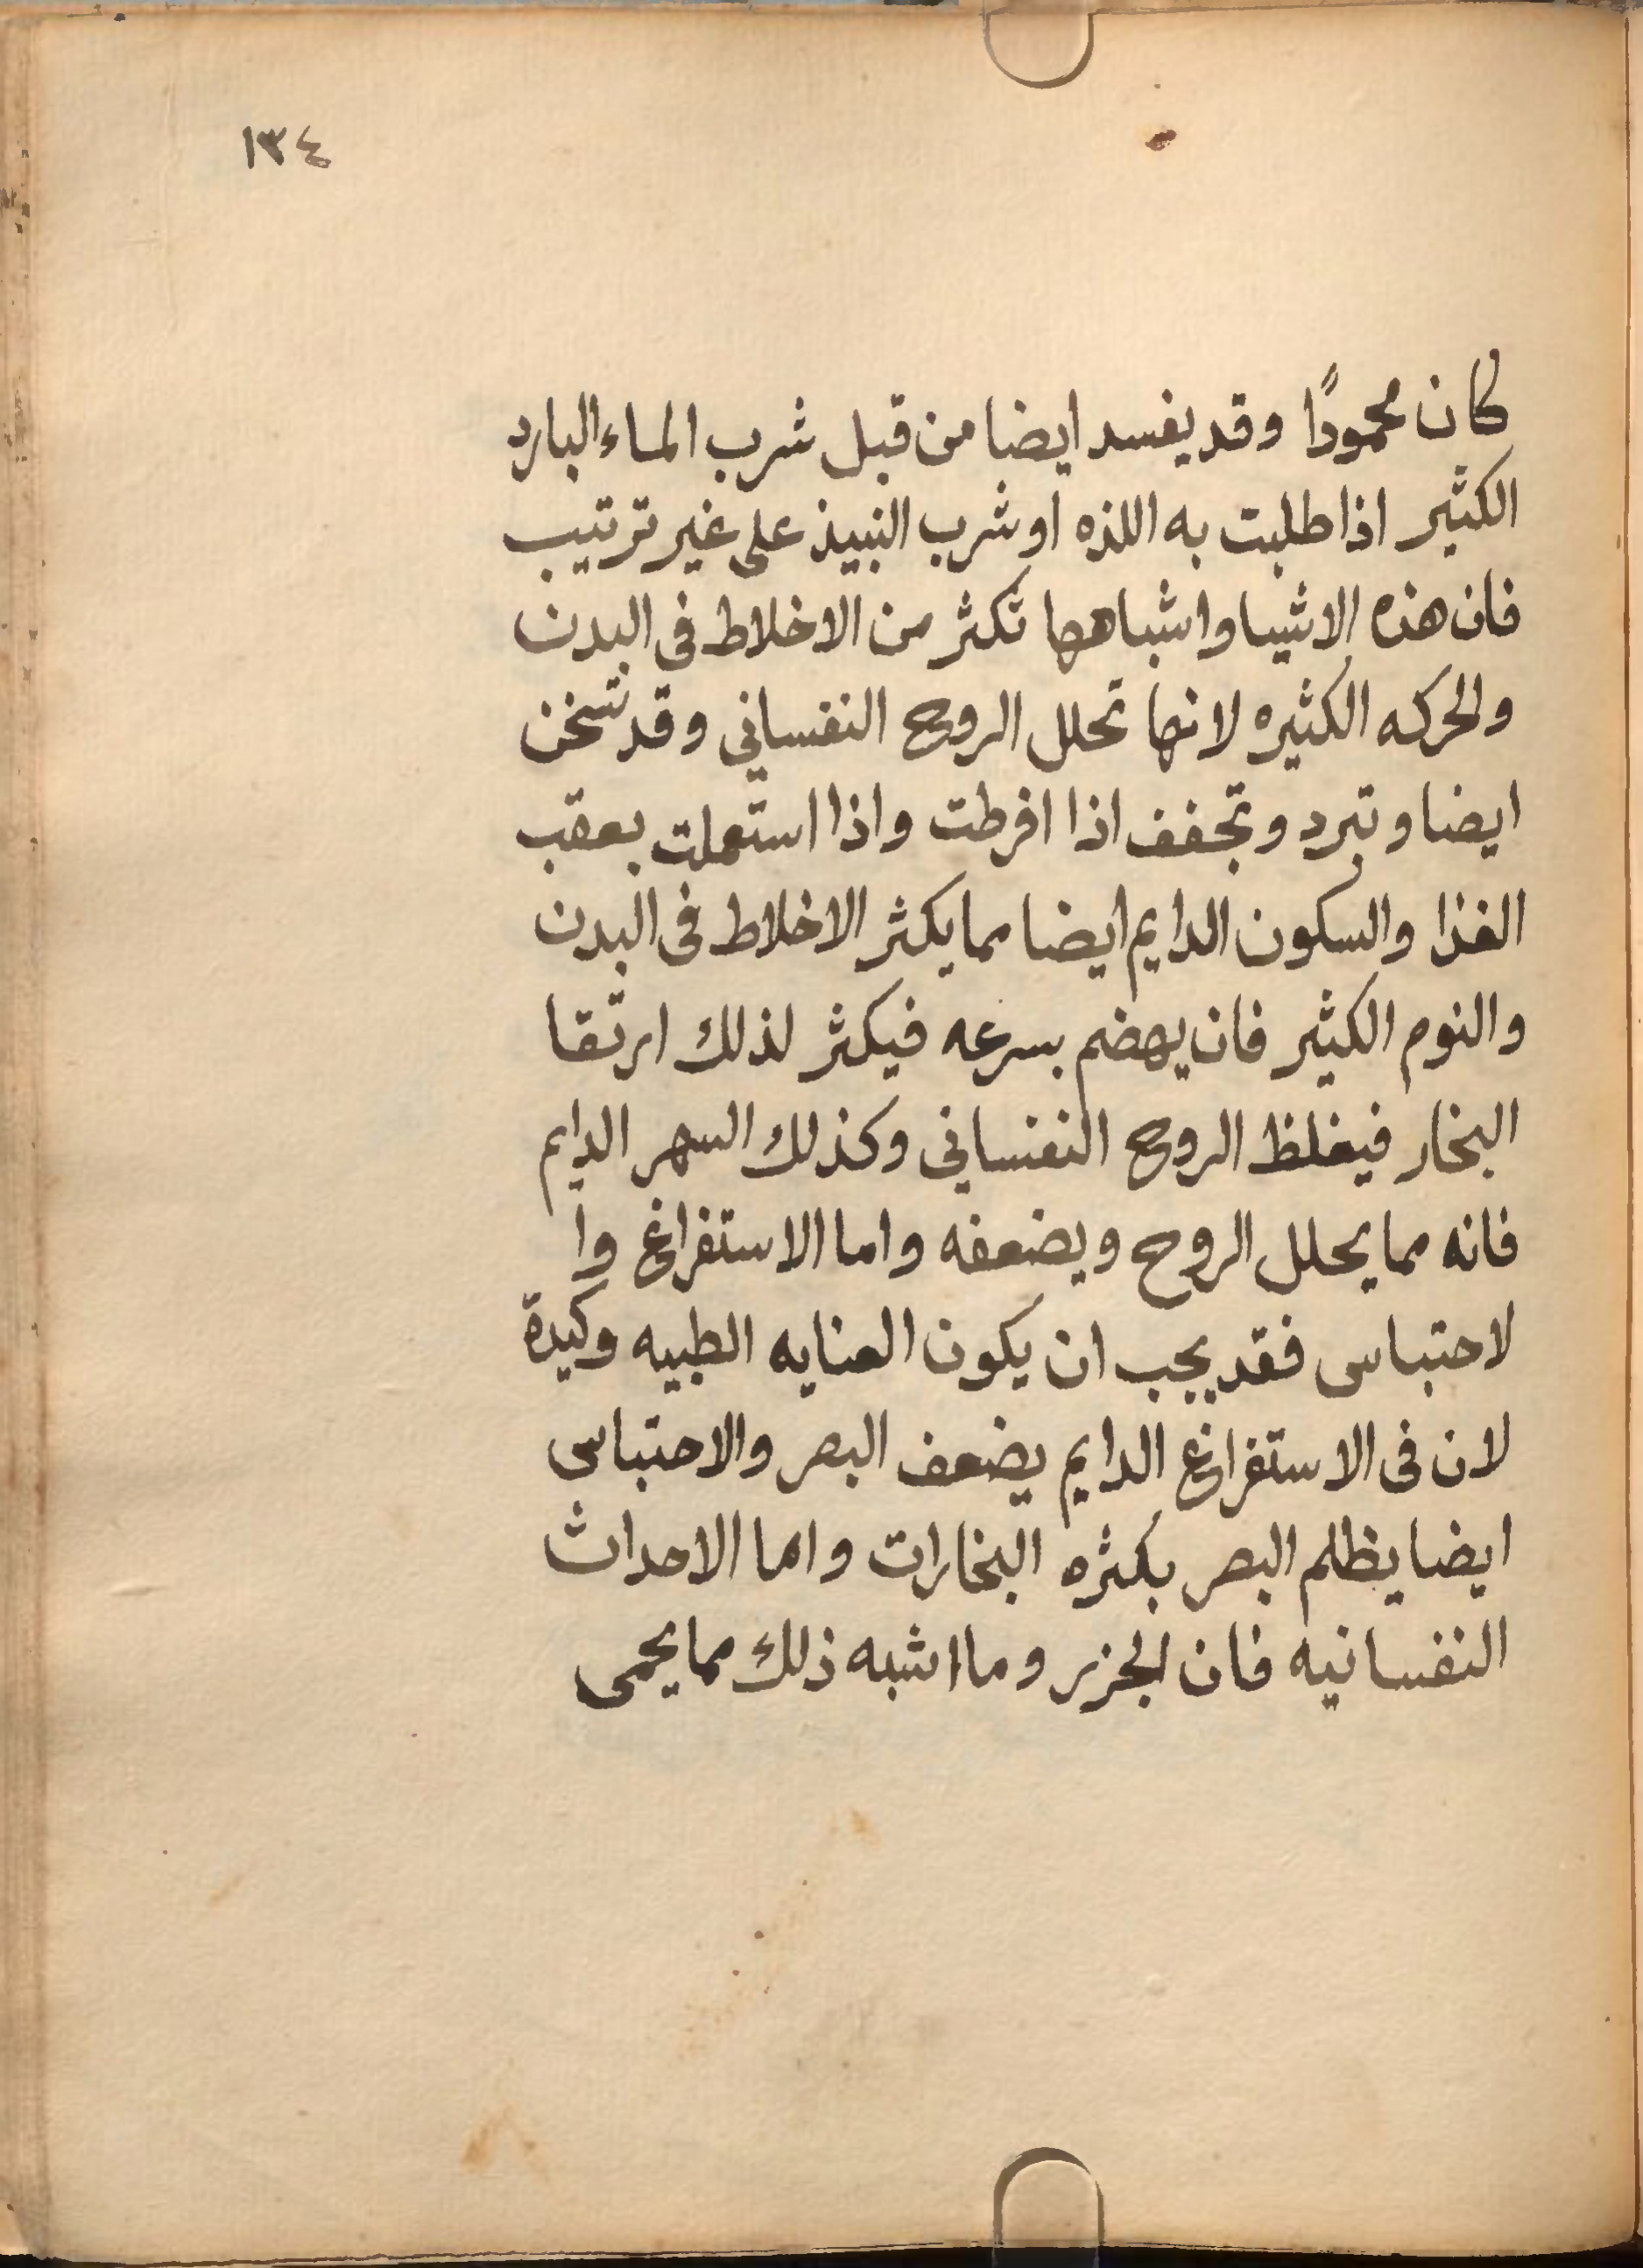 ١٣٤
كان محمودًا وقد يفسد ايضا من قبل شرب الماء البارد
الكثير اذا طلبت به اللذه او شرب النبيذ على غير ترتيب
فان هذه الاشيا واشباهها تكثر من الاخلاط فى البدن
والحركه الكثيره لانها تحلل الروح النفساني وقد تسخن
ايضا و تبرد وتجفف اذا افرطت واذا استعملت بعقب
الغذا والسكون الدايم ايضا مما يكثر الاخلاط فى البدن
والنوم الكثير فان يهضم بسرعه فيكثر لذلك ارتقا
البخار فيغلظ الروح النفسانى وكذلك السهر الدايم
فانه مما يحلل الروح ويضعفه واما الاستفراغ وا
لاحتباس فقد يجب ان يكون العنايه الطبيه وكيدة
لان فى الاستفراغ الدايم يضعف البصر والاحتباس
ايضا يظلم البصر بكثره البخارات واما الاحداث
النفسانيه فان الجزر وما اشبه ذلك مما يحمى